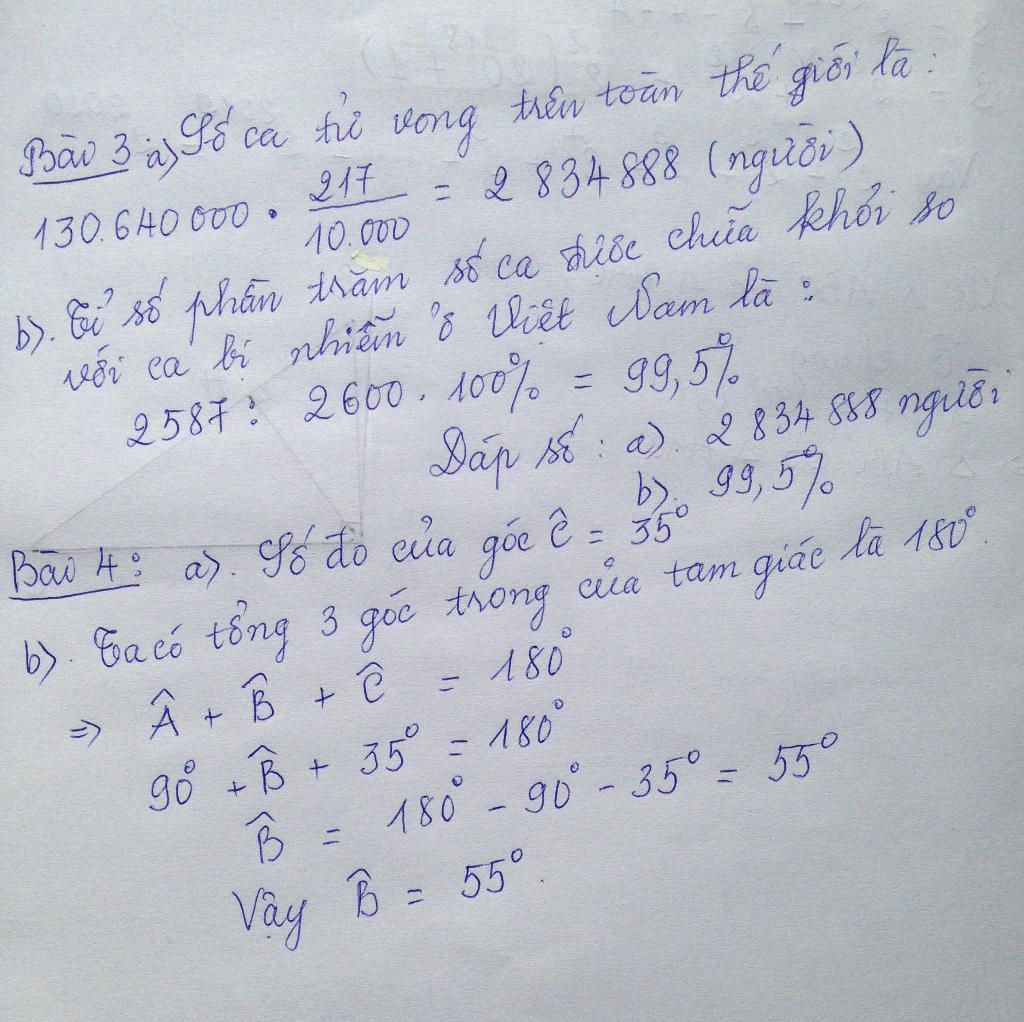 Bài 3 a) Số ca tử vong trên toàn thế giới là:
130.640 000 . 217/10.000 = 2 834 888 (người)
b). Tỉ số phần trăm số ca được chữa khỏi so
với ca bị nhiễm ở Việt Nam là:
2587 : 2600 . 100% = 99,5%
Đáp số : a). 2 834 888 người
b). 99,5%
Bài 4: a). Số đo của góc Ĉ = 35°
b). Ta có tổng 3 góc trong của tam giác là 180°.
=> Â + B̂ + Ĉ = 180°
90° + B̂ + 35° = 180°
B̂ = 180° - 90° - 35° = 55°
Vậy B̂ = 55°.